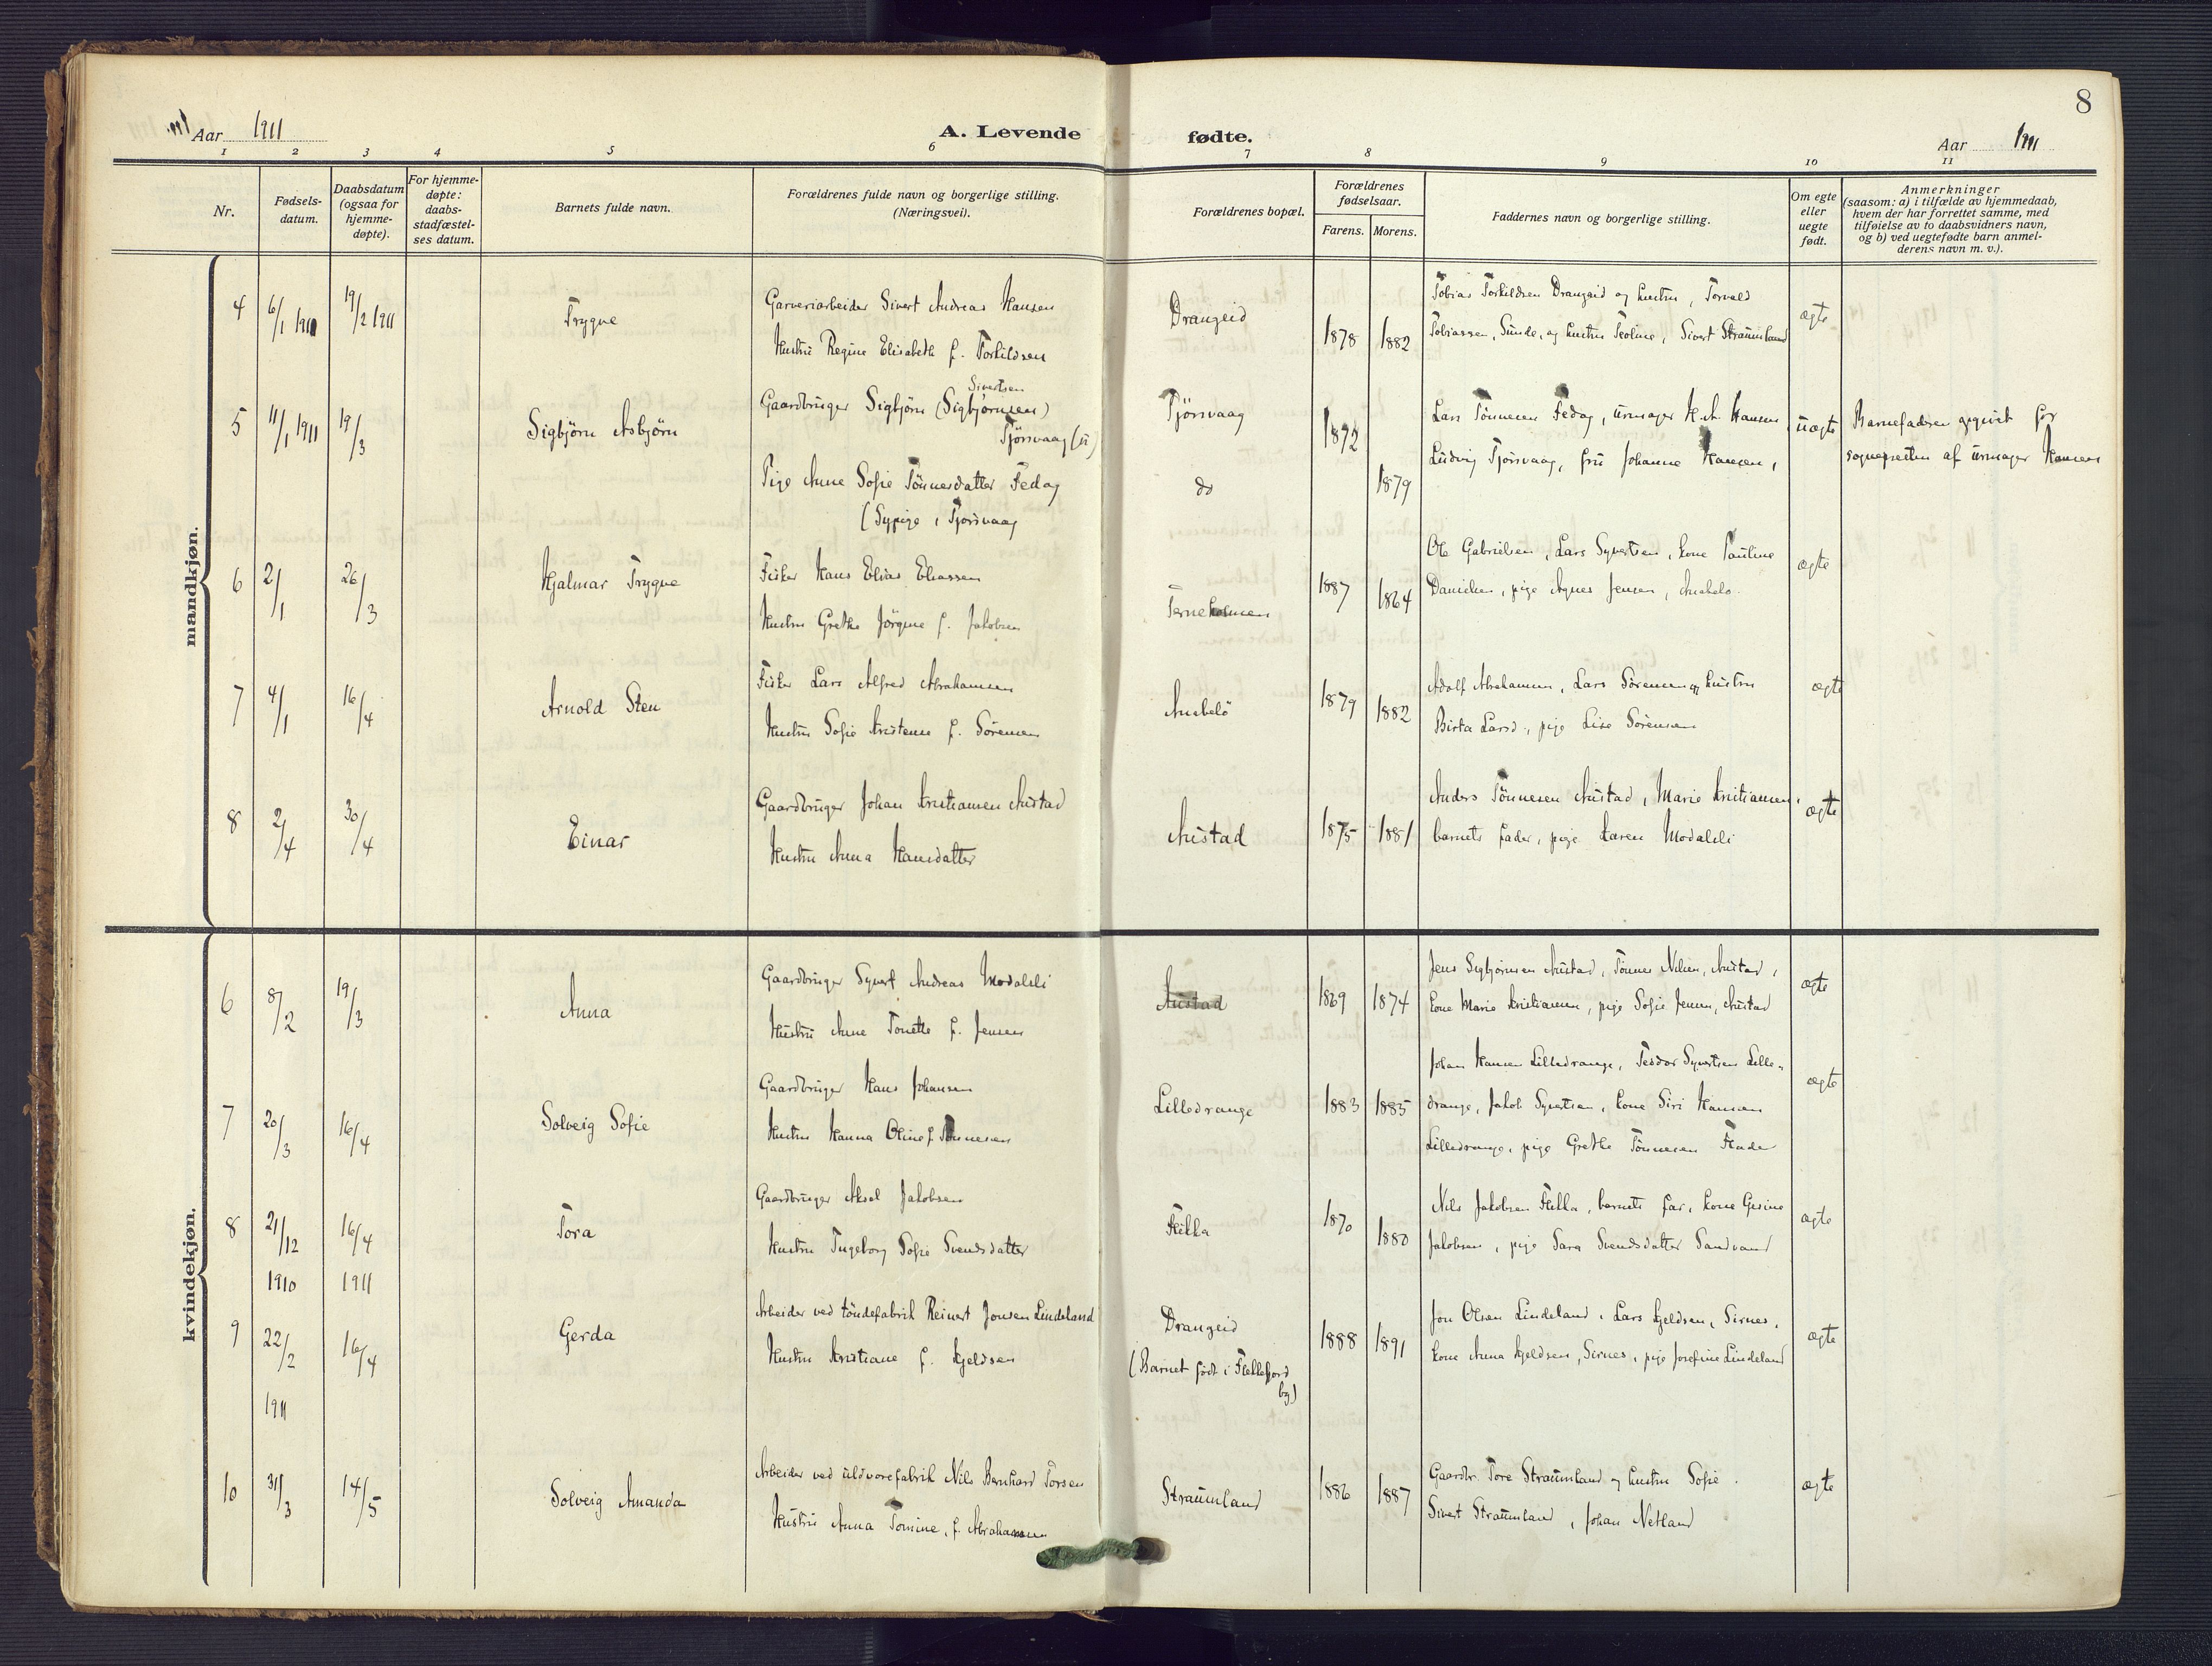 8
Aar 1911
A. Levende
fødte.
Aar 1911
1 2 3 4 5 6 7 8 9 10 11
Nr.
Fødsels-
datum.
Daabsdatum
(ogsaa for
hjemme-
døpte).
For hjemme-
døpte:
daabs-
stadfæstel-
ses datum.
Barnets fulde navn.
Forældrenes fulde navn og borgerlige stilling.
(Næringsvei).
Forældrenes bopæl.
Forældrenes
fødselsaar.
Farens. Morens.
Faddernes navn og borgerlige stilling.
Om egte
eller
uegte
født.
Anmerkninger
(saasom: a) i tilfælde av hjemmedaab,
hvem der har forrettet samme, med
tilføielse av to daabsvidners navn,
og b) ved uegtefødte barn anmel-
derens navn m. v.).
mandkjøn.
4 6/1 1911 19/2 1911
Trygve
Garveriarbeider Sivert Andreas Hansen
Hustru Regine Elisabeth f. Torkildsen
Drangeid
1878 1882
Tobias Torkildsen Drangeid og hustru, Torvald
Tobiassen, Sunde, og hustru Teoline, Sivert Straumland
ægte
5 11/1 1911 19/3
Sigbjörn Asbjörn
Sivertsen
Gaardbruger Sigbjörn (Sigbjörnsen)
Tjörsvaag (u)
Pige Anne Sofie Tönnesdatter Fedog
(Sypige i Tjorsvaag
Tjörsvaag
do
1892
1879
Lars Tönnesen Fedog, urmager H.A. Hansen,
Ludvig Tjörsvaag, fru Johanne Hansen,
uægte
Barnefaderen opgivet for
sognepresten af urmager Hansen
6 2/1 26/3
Hjalmar Trygve
Fisker Hans Elias Eliassen
Hustru Grethe Jörgine f. Jakobsen
Terneholmen
1887 1864
Ole Gabrielsen, Lars Syvertsen, kone Pauline
Danielsen, pige Agnes Jensen, Anabelö.
ægte
7 4/1 16/4
Arnold Sten
Fisker Lars Alfred Abrahamsen
Hustru Sofie Kristense f. Sörensen
Anabelö
1879 1882
Adolf Abrahamsen, Lars Sörensen og hustru
Birta Larsd., pige Lise Sörensen
ægte
8 2/4 30/4
Einar
Gaardbruger Johan Kristiansen Austad
Hustru Anna Hansdatter
Austad
1875 1881
Anders Tönnesen Austad, Marie Kristiansen,
barnets fader, pige Karen Modalsli
ægte
kvindekjøn.
6 8/2 19/3
Anna
Gaardbruger Syvert Andreas Modalsli
Hustru Anne Tonette f. Jensen
Austad
1869 1874
Jens Sigbjörnsen Austad, Tönnes Nilsen, Austad,
kone Marie Kristiansen, pige Sofie Jensen, Austad
ægte
7 20/3 16/4
Solveig Sofie
Gaardbruger Hans Johansen
Hustru Hanna Oline f. Tönnesen
Lilledrange
1883 1885
Johan Hansen Lilledrange, Teodor Syvertsen Lille-
drange, Jakob Syvertsen, kone Siri Hansen
Lilledrange, pige Grethe Tönnesen
ægte
8 21/12 16/4
1910 1911
Tora
Gaardbruger Aksel Jakobsen
Hustru Ingeborg Sofie Svendsdatter
Flikka
1870 1880
Nils Jakobsen Flikka, barnets far, kone Gesine
Jakobsen, pige Sara Svendsdatter Sandvand
ægte
9 22/2 16/4
1911
Gerda
Arbeider ved töndefabrik Reinert Jonsen Lindeland
Hustru Kristiane f. Kjeldsen
Drangeid
(Barnet født i Flekkefjord
by)
1888 1891
Jon Olsen Lindeland, Lars Kjeldsen, Sirnes,
kone Anna Kjeldsen, Sirnes, pige Josefine Lindeland
ægte
10 31/3 14/5
Solveig Amanda
Arbeider ved uldvarefabrik Nils Bernhard Torsen
Hustru Anna Tomine, f. Abrahamsen
Straumland
1886 1887
Gaardbr. Tore Straumland og hustru Sofie.
Sivert Straumland, Johan Netland
ægte